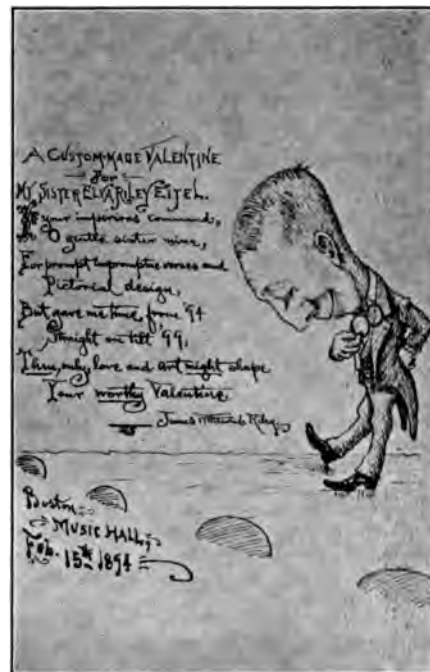 A CUSTOM-MADE VALENTINE
for
MY SISTER ELVA RILEY EITEL.
If your imperious command,
O gentle sister mine,
For prompt impromptu verses and
Pictorial design,
But gave me time from '94
Straight on till '99,
Then, only, love and art might shape
Your worthy Valentine.
James Whitcomb Riley.
Boston
MUSIC HALL,
Feb. 15th 1894